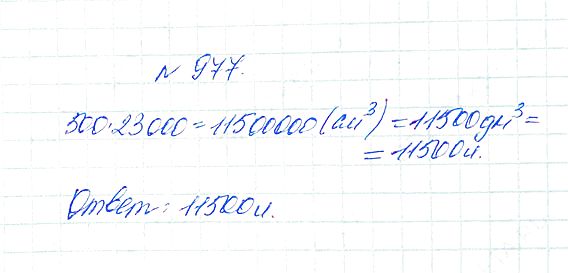 № 977.
500·23000=11500000(см³)=11500дм³=
=11500л.
Ответ: 11500л.